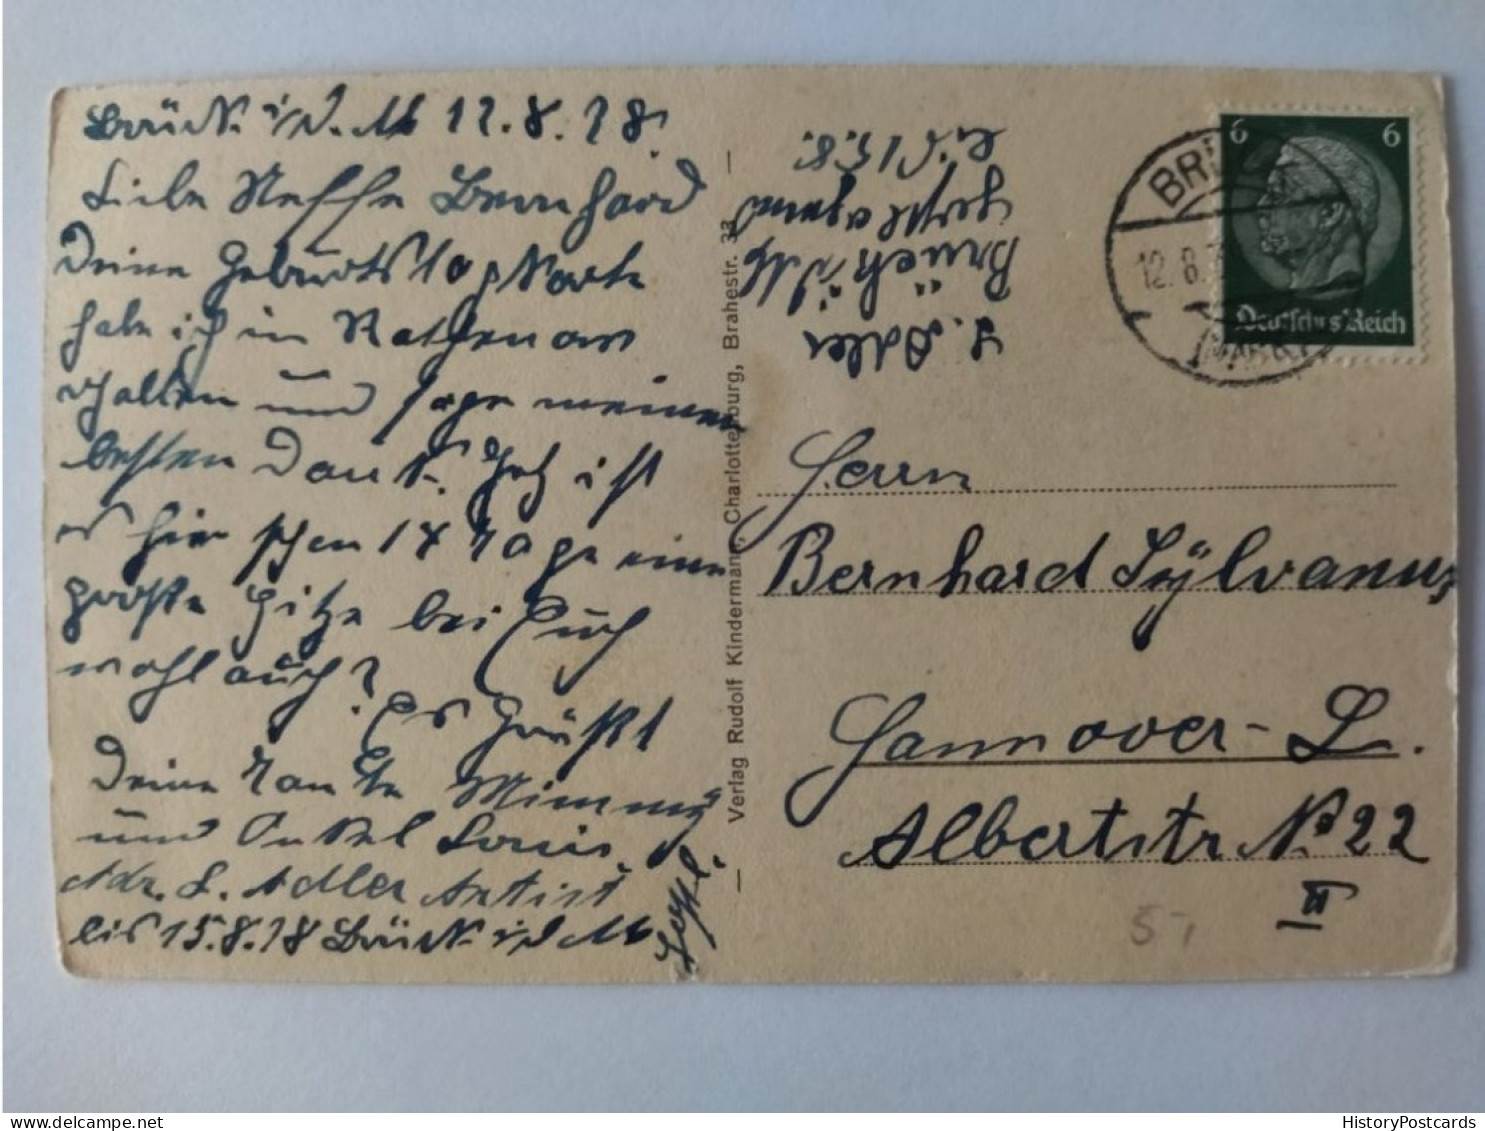 Brück i/d. M 12.8.38.
Liebe Neffe Bernhard
Deine Geburtstagskarte
habe ich in Rathenow
erhalten und sage meinen
besten Dank. Jetz ist
es hier schon 14 Tage eine
große Hitze bei Euch
wohl auch? Es Grüßt
Deine Tante Mimmÿ
und Onkel Louis.
Adr. L. Adler Artist
bis 15.8.38 Brück i/d M
postl.
L. Adler
Brück i/M
postlagernd
bis 15.8.
Verlag Rudolf Kindermann, Charlottenburg, Brahestr. 33
6 6
Deutsches Reich
BRÜCK
12.8.
(MARK)
Herrn
Bernhard Sÿlvanus
Hannover-L.
Albertstr No 22
II
5,
HistoryPostcards.com